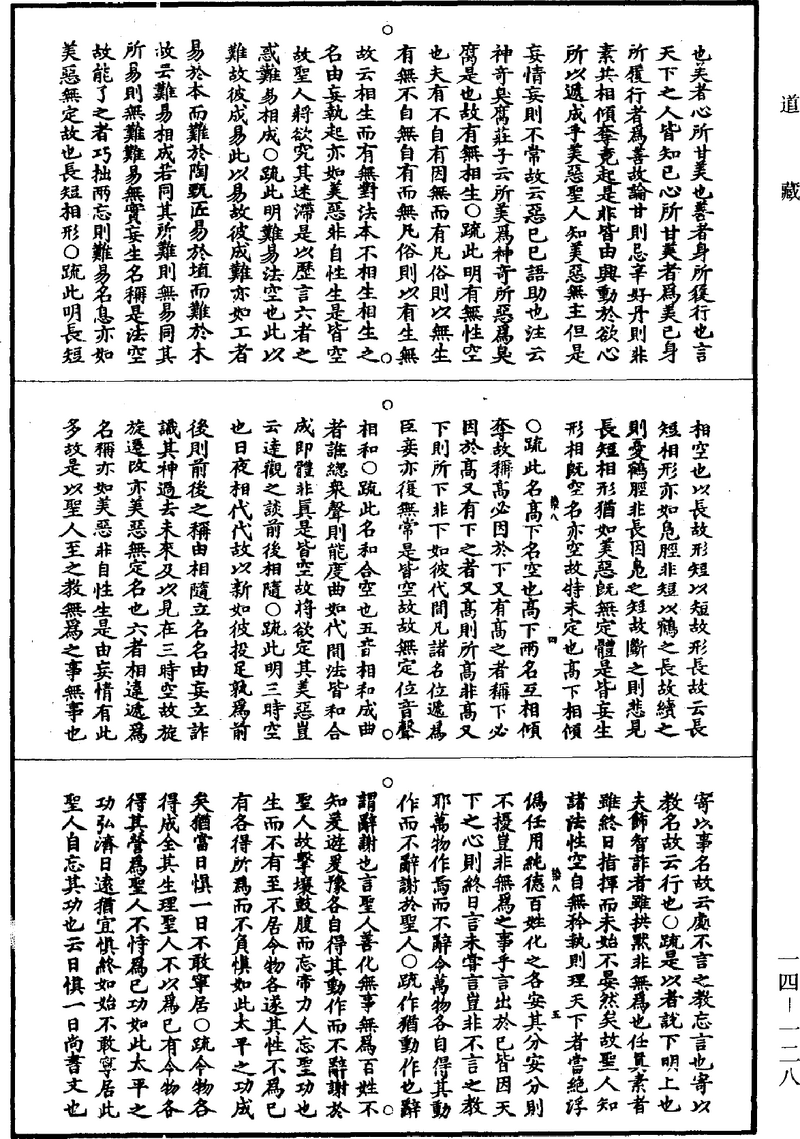 道藏
也夫者心所甘美也善者身所復行也言
天下之人皆知已心所甘美者為美已身
所履行者為善故論甘則忌辛好丹則非
素共相傾奪竟起是非皆由興動於欲心
所以遞成乎美惡聖人知美惡無主但是
妄情妄則不常故云惡已已語助也注云
神奇臭腐莊子云所美為神奇所惡為臭
腐是也故有無相生○疏此明有無性空
也夫有不自有因無而有凡俗則以無生
有無不自無自有而無凡俗則以有生無
故云相生而有無對法本不相生相生之
名由妄執起亦如美惡非自性生是皆空
故聖人將欲究其迷滯是以歷言六者之
惑難易相成○疏此明難易法空也此以
難故彼成易此以易故彼成難亦如工者
易於本而難於陶甄匠易於埴而難於木
故云難易相成若同其所難則無易同其
所易則無難難易無實妄生名稱是法空
故能了之者巧拙兩忘則難易名息亦如
美惡無定故也長短相形○疏此明長短
相空也以長故形短以短故形長故云長
短相形亦如鳧脛非短以鶴之長故續之
則憂鶴脛非長因鳧之短故斷之則悲見
長短相形猶如美惡既無定體是皆妄生
形相既空名亦空故特未定也高下相傾
○疏此名高下名空也高下兩名互相傾
奪故稱高必因於下又有高之者稱下必
因於高又有下之者又高則所高非高又
下則所下非下如彼代間凡諸名位遞為
臣妾亦復無常是皆空故故無定位音聲
相和○疏此名和合空也五音相和成曲
者誰總眾聲則能度曲如代間法皆和合
成即體非真是皆空故將欲定其美惡豈
云達觀之談前後相隨○疏此明三時空
也日夜相代代故以新如彼投足孰為前
後則前後之稱由相隨立名名由妄立詐
識其神過去未來及以見在三時空故旋
旋遷改亦美惡無定名也六者相違遞為
名稱亦如美惡非自性生是由妄情有此
多故是以聖人至之教無為之事無事也
寄以事名故云處不言之教忘言也寄以
教名故云行也○疏是以者說下明上也
夫飾智詐者雖拱默非無為也任真素者
雖終日指揮而未始不晏然矣故聖人知
諸法性空自無矜執則理天下者當絕浮
偽任用純德百姓化之各安其分安分則
不擾豈非無為之事乎言出於已皆因天
下之心則終日言未嘗言豈非不言之教
耶萬物作焉而不辭令萬物各自得其動
作而不辭謝於聖人○疏作猶動作也辭
謂辭謝也言聖人善化無事無為百姓不
知爰遊爰豫各自得其動作而不辭謝於
聖人故擊壤鼓腹而忘帝力人忘聖功也
生而不有至不居令物各遂其性不為已
有各得所為而不負慎如此太平之功成
矣猶當日慎一日不敢寧居○疏令物各
得成全其生理聖人不以為已有令物各
得其營為聖人不恃為已功如此太平之
功弘濟日遠猶宜慎終如始不敢寧居此
聖人自忘其功也云日慎一日尚書文也
四
五
一四－一二八